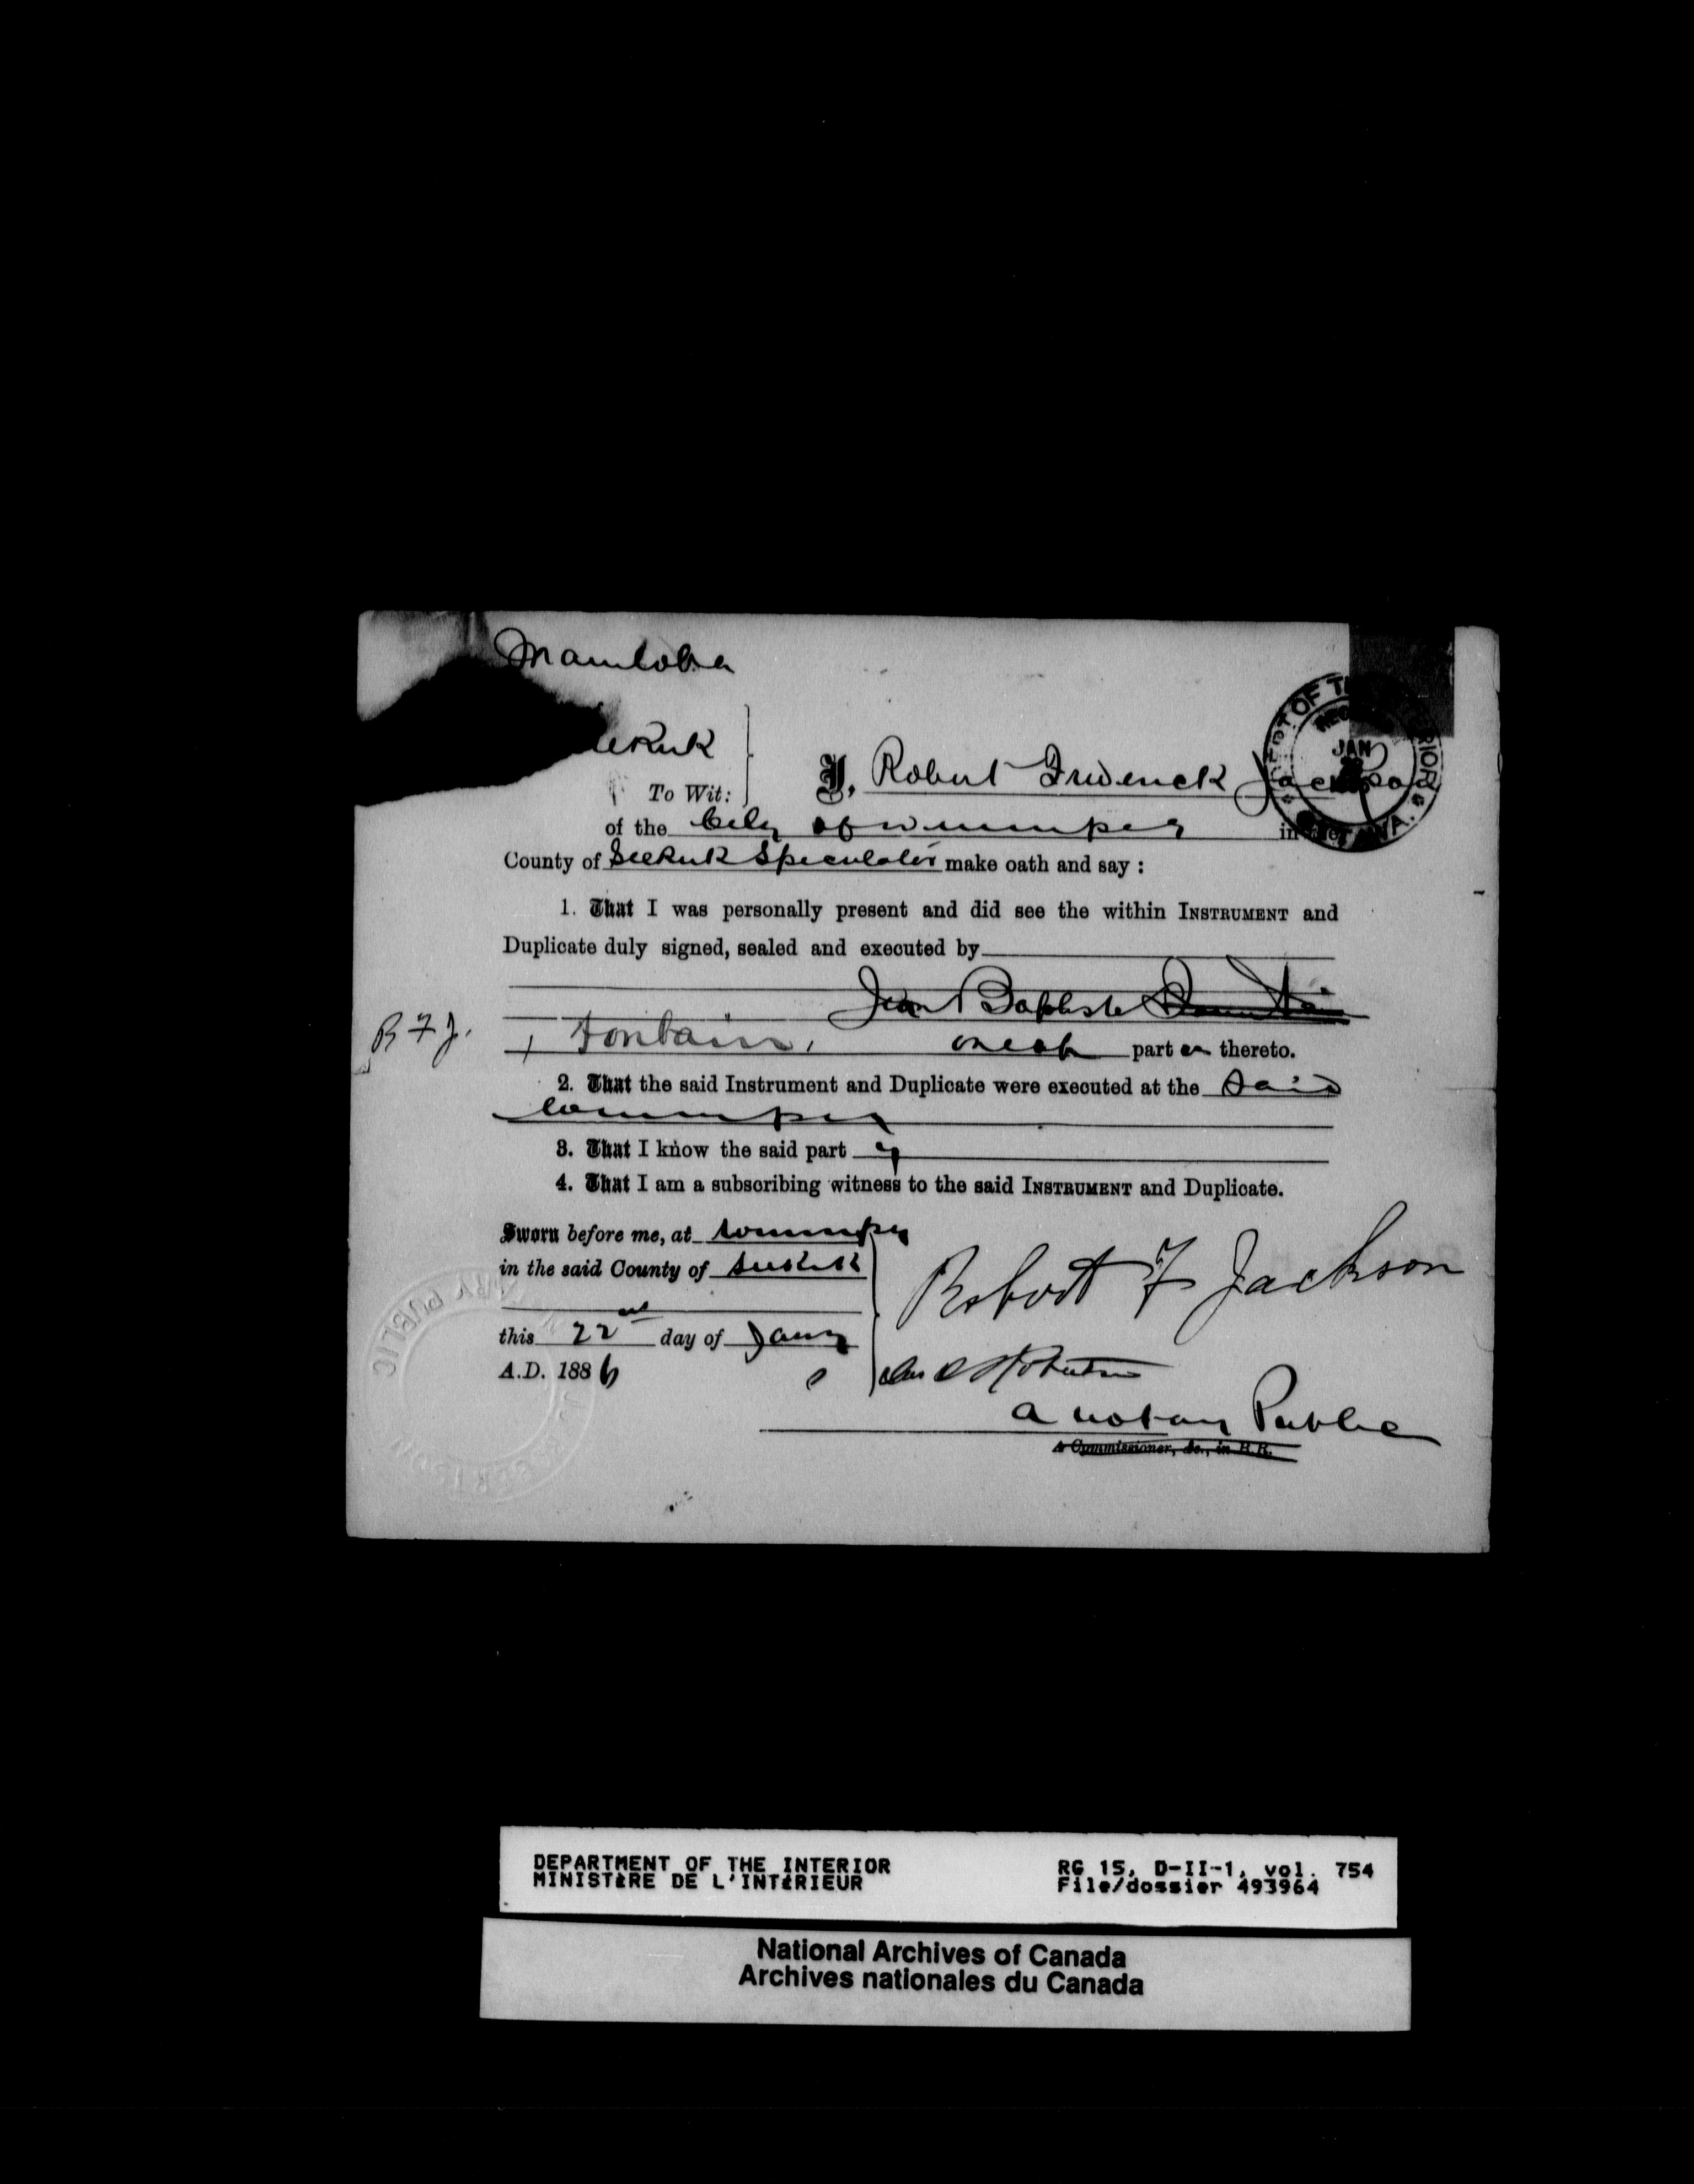 Manitoba
To Wit:
I, Robert Frederick Jackson
of the City of Winnipeg in the
County of Selkirk Speculator make oath and say :
1. That I was personally present and did see the within INSTRUMENT and
Duplicate duly signed, sealed and executed by
Jean Baptiste
R F J.
Fontain, one of part es thereto.
2. That the said Instrument and Duplicate were executed at the Said
Winnipeg
3. That I know the said part y
4. That I am a subscribing witness to the said INSTRUMENT and Duplicate.
Sworn before me, at Winnipeg
in the said County of Selkirk
this 22nd day of Jany
A.D. 1886
Robert F Jackson
a notary Public
A Commissioner, &c., in B.R.
DEPT OF THE INTERIOR
JAN
OTTAWA.
NOTARY PUBLIC
DEPARTMENT OF THE INTERIOR
MINISTÈRE DE L'INTÉRIEUR
RG 15, D-II-1, vol. 754
File/dossier 493964
National Archives of Canada
Archives nationales du Canada